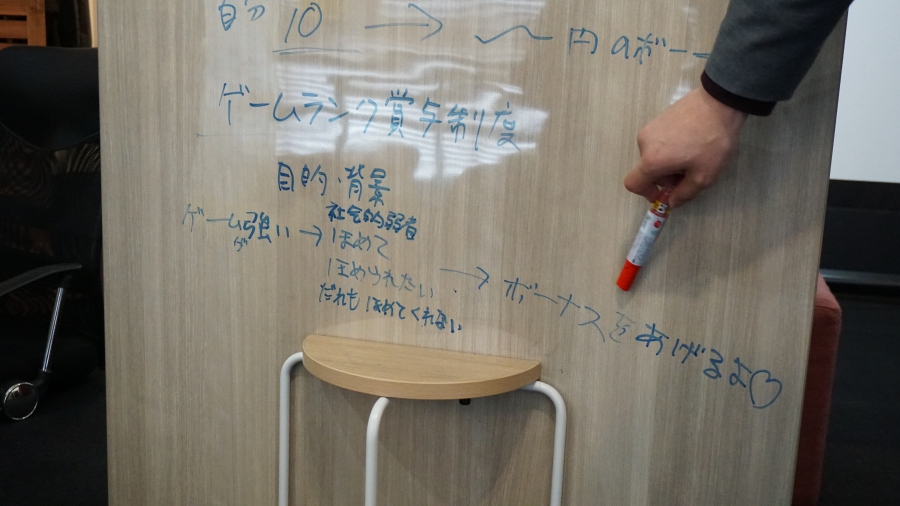 自分 10 → 〜 円のボー
ゲームランク賞与制度
目的・背景
社会的弱者
ゲームが強い → ほめて
ほめられたい → ボーナスをあげるよ♡
だれもほめてくれない